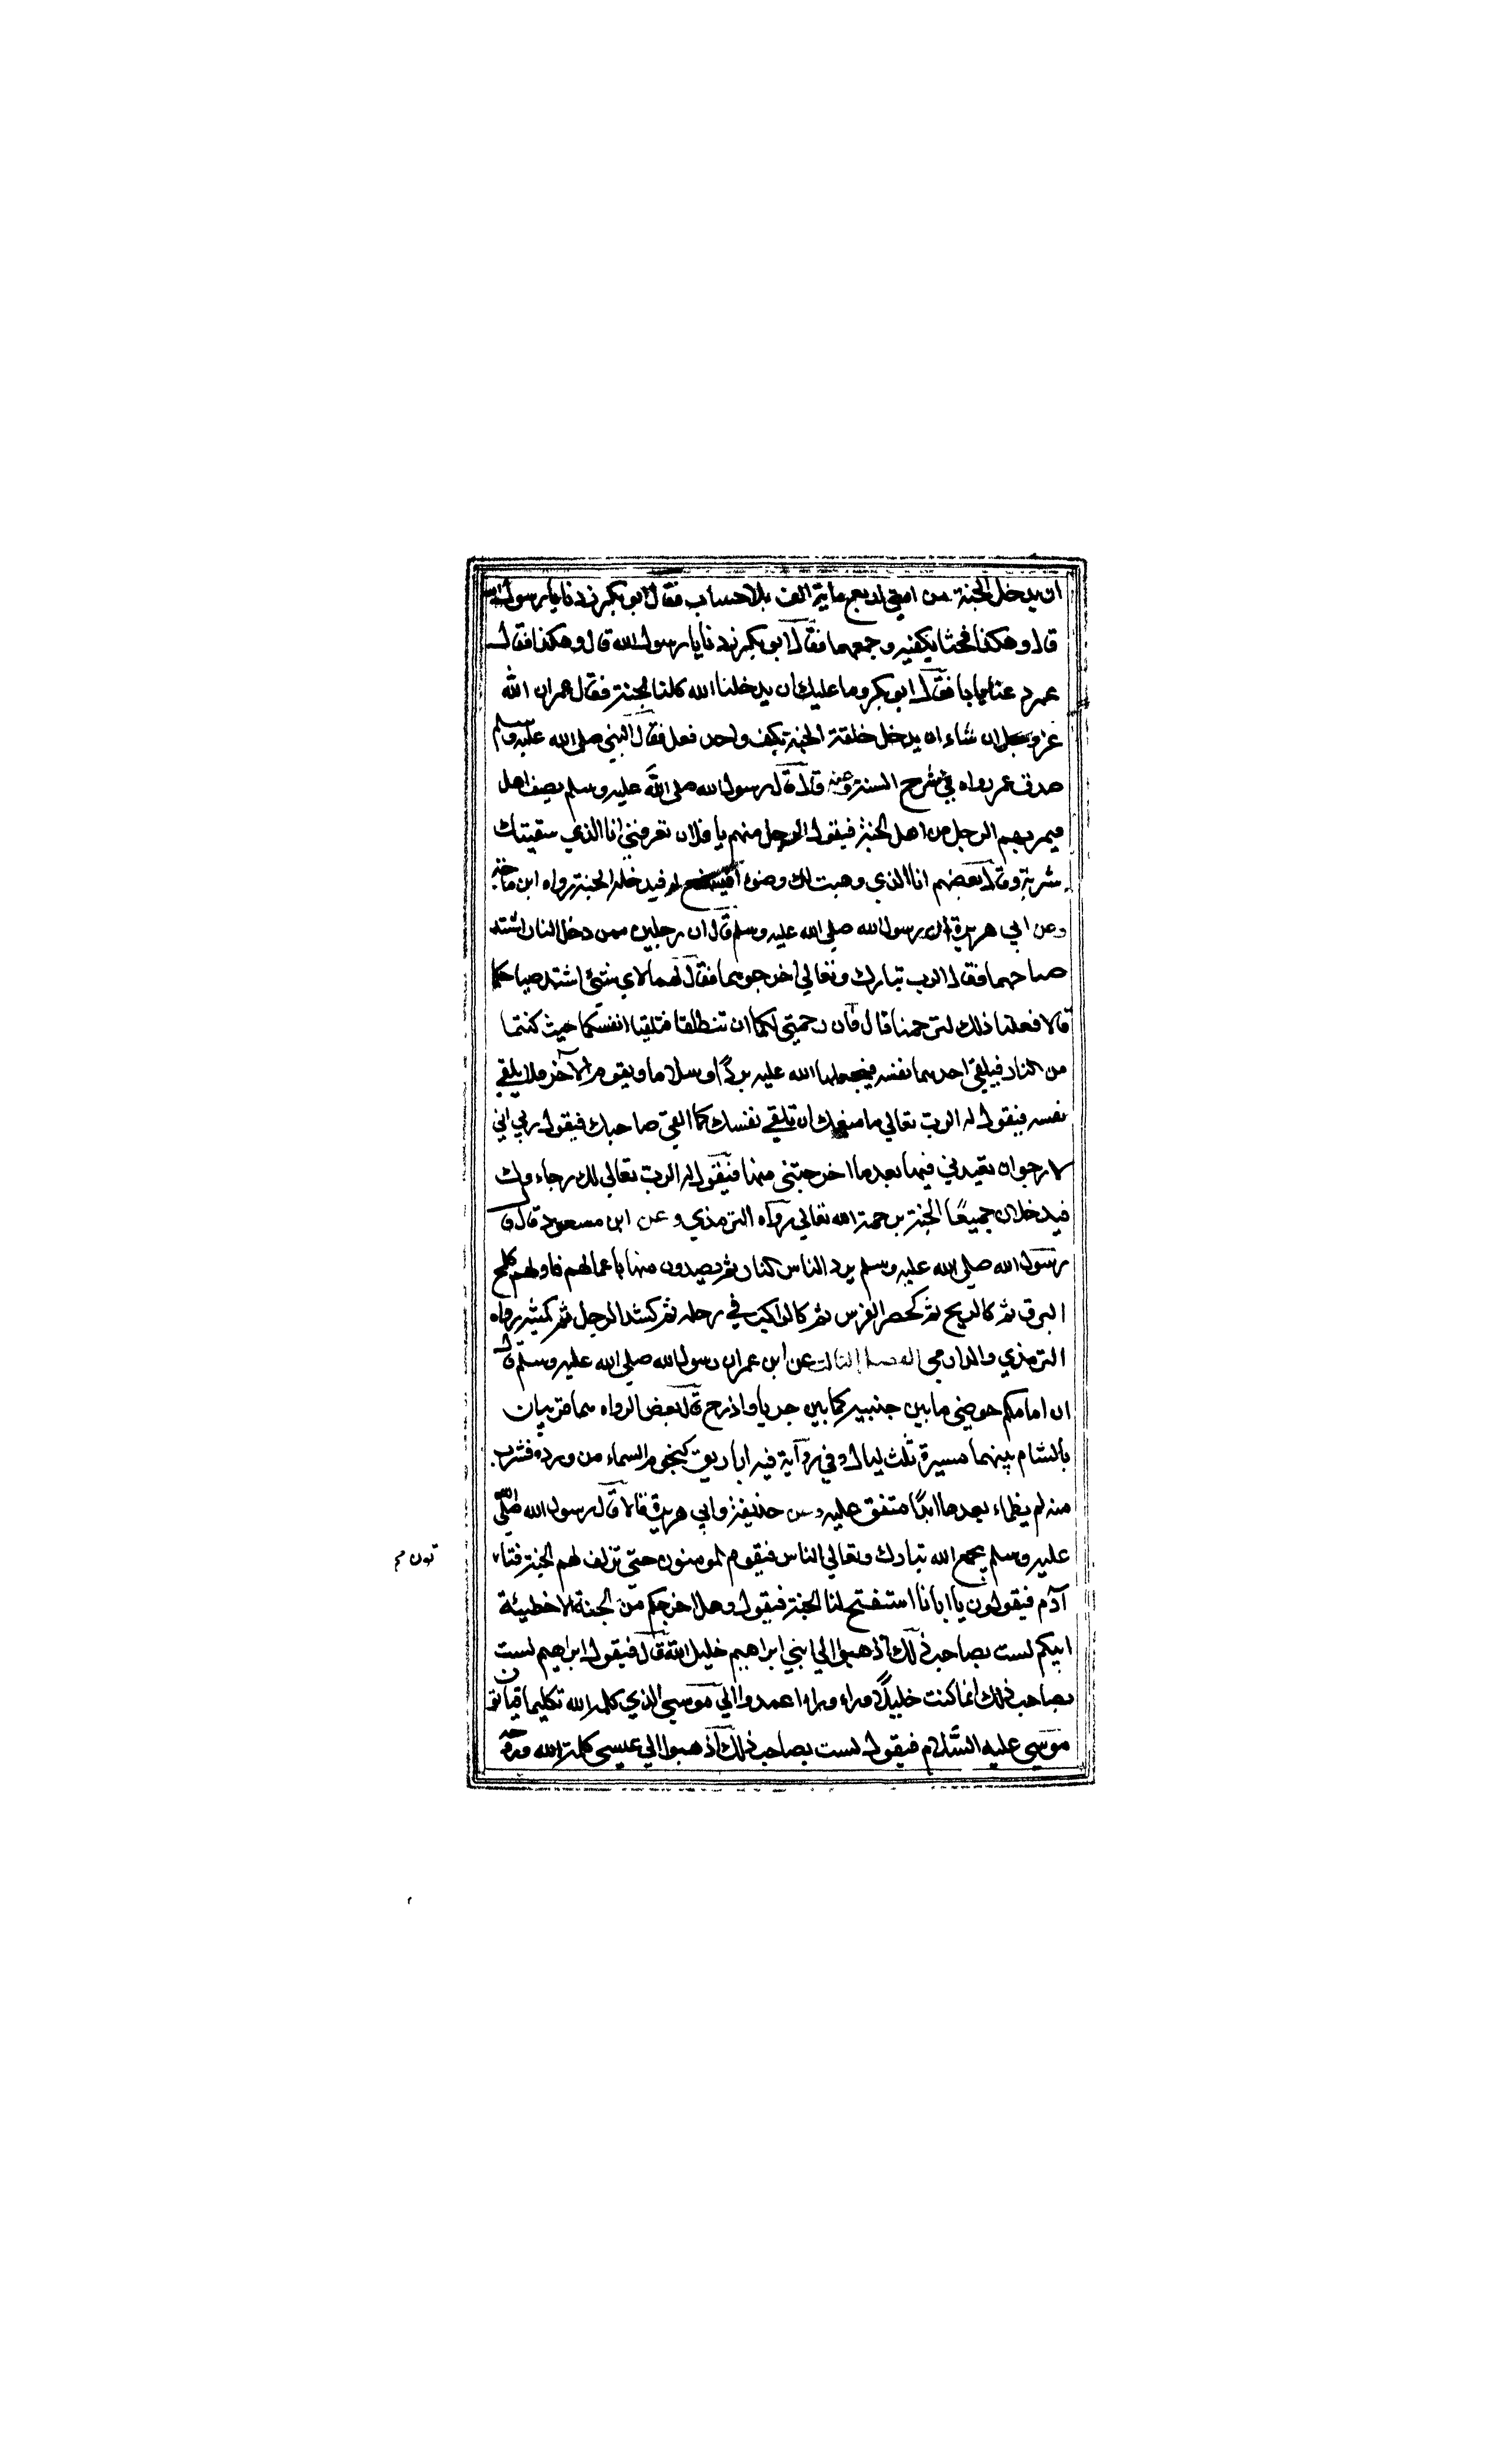 ان يدخل الجنة من امتي اربع ماية الف بلا حساب فقال ابو بكر زدنا يا رسول الله
قال وهكذا فحثا بكفيه وجمعهما فقال ابو بكر زدنا يا رسول الله قال وهكذا فقال
عمر دعنا يا با فقال ابو بكر وما عليك ان يدخلنا الله كلنا الجنة فقال عمر ان الله
عز وجل ان شاء ان يدخل خلقه الجنة بكف واحد فعل فقال النبي صلى الله عليه وسلم
صدق عمر رواه في شرح السنة وعنه قال قال رسول الله صلى الله عليه وسلم يصف اهل
فيمر بهم الرجل من اهل الجنة فيقول الرجل منهم يا فلان تعرفني انا الذي سقيتك
شربة وقال بعضهم انا الذي وهبت لك وضوء فيشفع له فيدخله الجنة رواه ابن ماجه
وعن ابي هريرة ان رسول الله صلي الله عليه وسلم قال ان رجلين ممن دخل النار اشتد
صياحهما فقال الرب تبارك وتعالي اخرجوهما فقال لهما لاي شئ اشتد صياحكما
قالا فعلنا ذلك لترحمنا قال فان رحمتي لكما ان تنطلقا فتلقيا انفسكما حيث كنتما
من النار فيلقي احدهما نفسه فيجعلها الله عليه بردًا وسلاما ويقوم الآخر فلا يلقي
نفسه فيقول له الرب تعالي ما منعك ان تلقي نفسك كما القي صاحبك فيقول رب اني
لارجو ان تعيدني فيها بعد ما اخرجتني منها فيقول له الرب تعالي لك رجاءك
فيدخلان جميعًا الجنة برحمة الله تعالي رواه الترمذي وعن ابن مسعود قال ق
رسول الله صلي الله عليه وسلم يرد الناس النار ثم يصدون منها باعمالهم فاولهم كلمح
البرق ثم كالريح ثم كحصر الفرس ثم كالراكب في رحله ثم كشد الرجل ثم كمشيه رواه
الترمذي والدارمي الفصل الثالث عن ابن عمر ان رسول الله صلي الله عليه وسلم قال
ان امامكم حوضي ما بين جنبيه كما بين جربا واذرح قال بعض الرواه هما قريتان
بالشام بينهما مسيرة ثلث ليال وفي رواية فيه اباريق كنجوم السماء من ورده فشرب
منه لم يظماء بعدها ابدًا متفق عليه وعن حذيفة وابي هريرة قالا قال رسول الله صلى الله
عليه وسلم يجمع الله تبارك وتعالي الناس فيقوم المومنون حتي تزلف لهم الجنة فيا
تون م
آدم فيقولون يا ابانا استفتح لنا الجنة فيقول وهل اخرجكم من الجنة الا خطيئة
ابيكم لست بصاحب ذلك اذهبوا الي ابني ابراهيم خليل الله قال فيقول ابراهيم لست
بصاحب ذلك انما كنت خليلًا وراء وراء اعمدوا الي موسي الذي كلمه الله تكليما فياتون
موسي عليه السّلام فيقول لست بصاحب ذلك اذهبوا الي عيسي كلمة الله وروحه